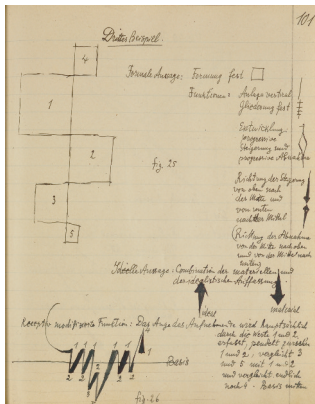 101
Drittes Beispiel.
4
Formale Aussage: Formung fest
1
Funktionen: Anlage vertical
Gliederung fest
Entwicklung:
progressive
Steigerung und
progressive Abnahme
2
fig 25
Richtung der Steigerung
von oben nach
der Mitte und
von unten
nach der Mitte
3
(Richtung der Abnahme
von der Mitte nach oben
und von der Mitte nach
unten)
5
Ideelle Aussage: Combination der materiellen und
der idealistischen Auffassung
ideal
materiell
Receptiv modificierte Function: Das Auge des Aufnehmenden wird hauptsächlich
durch die Werte 1 und 2
erfasst, pendelt zwischen
1 und 2, vergleicht 3
und 5 mit 1 und 2
und vergleicht endlich
noch 4. Basis unten
1 1 1 1
2 2 2 2
Basis
fig. 26